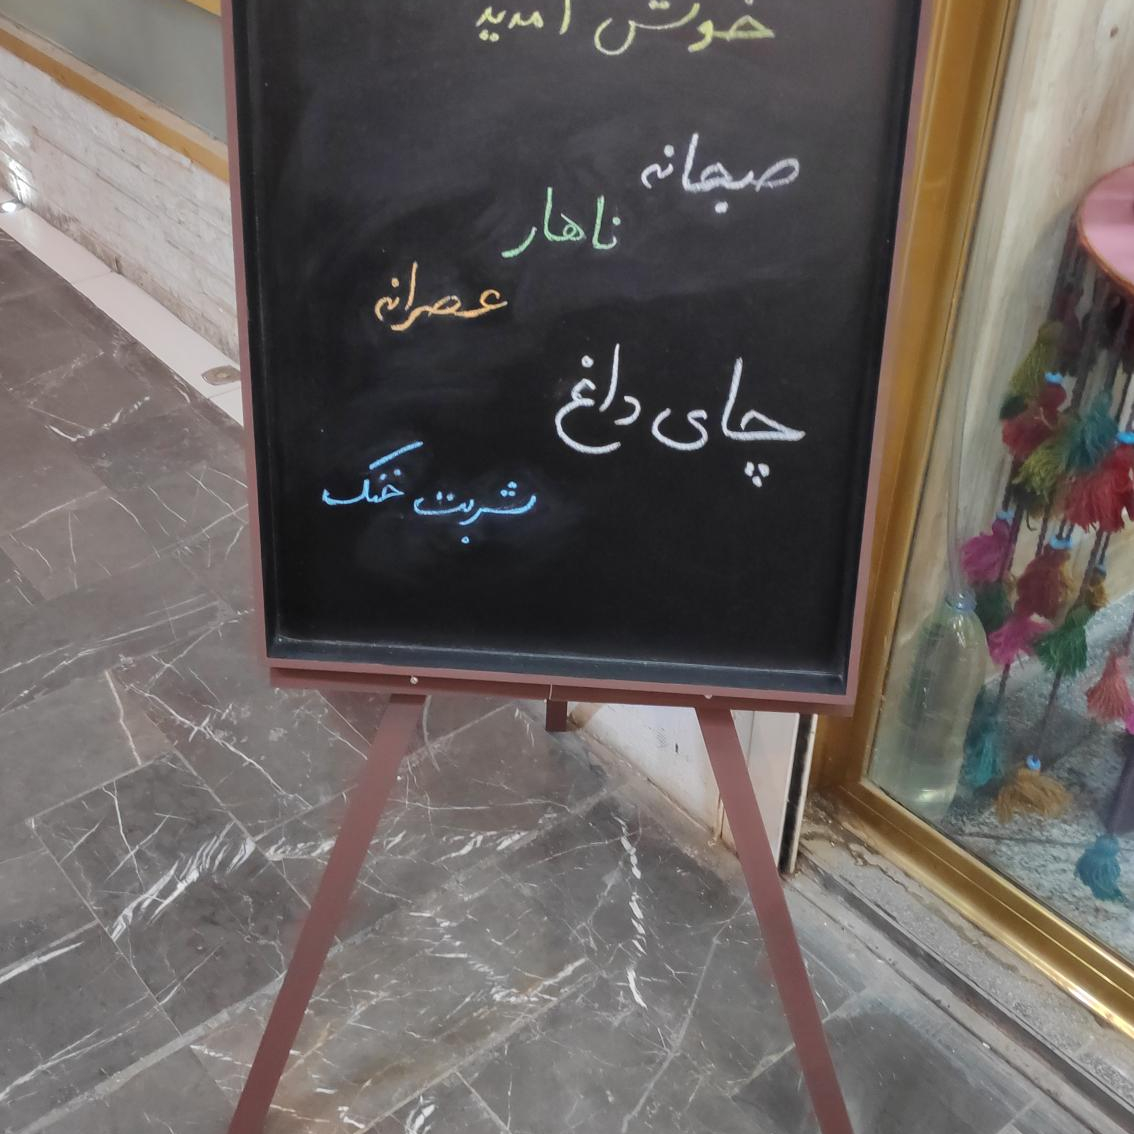 خوش آمدید
صبحانه
ناهار
عصرانه
چای داغ
شربت خنک